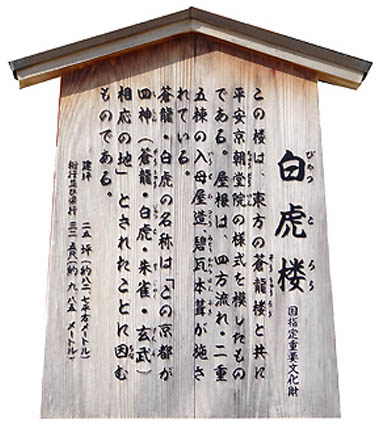 白虎楼
国指定重要文化財
この楼は、東方の蒼龍楼と共に
平安京朝堂院の様式を模したもの
である。屋根は、四方流れ・二重
五棟の入母屋造、碧瓦本葺が施さ
れている。
蒼龍・白虎の名称は「この京都が
四神(蒼龍・白虎・朱雀・玄武)
相応の地」とされたことに因む
ものである。
建坪 二五坪(約八二、七平方メートル)
桁行並び梁行 三二、五尺(約九、八五メートル)